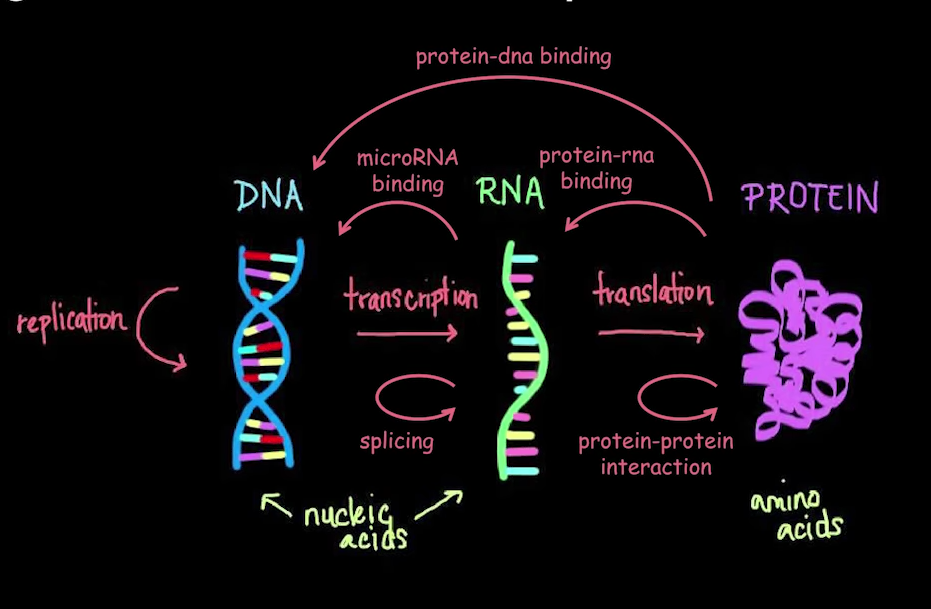 protein-dna binding
microRNA
binding
protein-rna
binding
DNA
RNA
PROTEIN
replication
transcription
translation
splicing
protein-protein
interaction
nucleic
acids
amino
acids